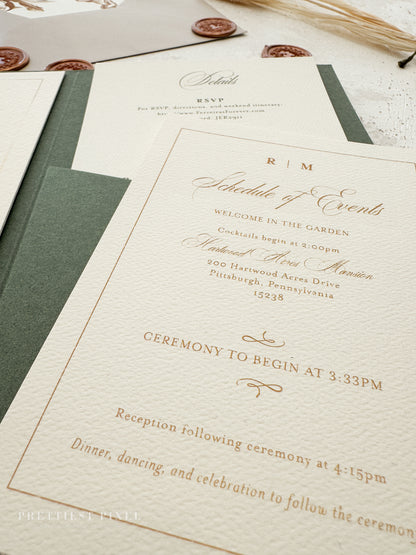 Details
RSVP
For RSVP, directions, and weekend itinerary:
R | M
Schedule of Events
WELCOME IN THE GARDEN
Cocktails begin at 2:00pm
Hartwood Acres Mansion
200 Hartwood Acres Drive
Pittsburgh, Pennsylvania
15238
CEREMONY TO BEGIN AT 3:33PM
Reception following ceremony at 4:15pm
Dinner, dancing, and celebration to follow the ceremon
PRETTIEST PIXEL